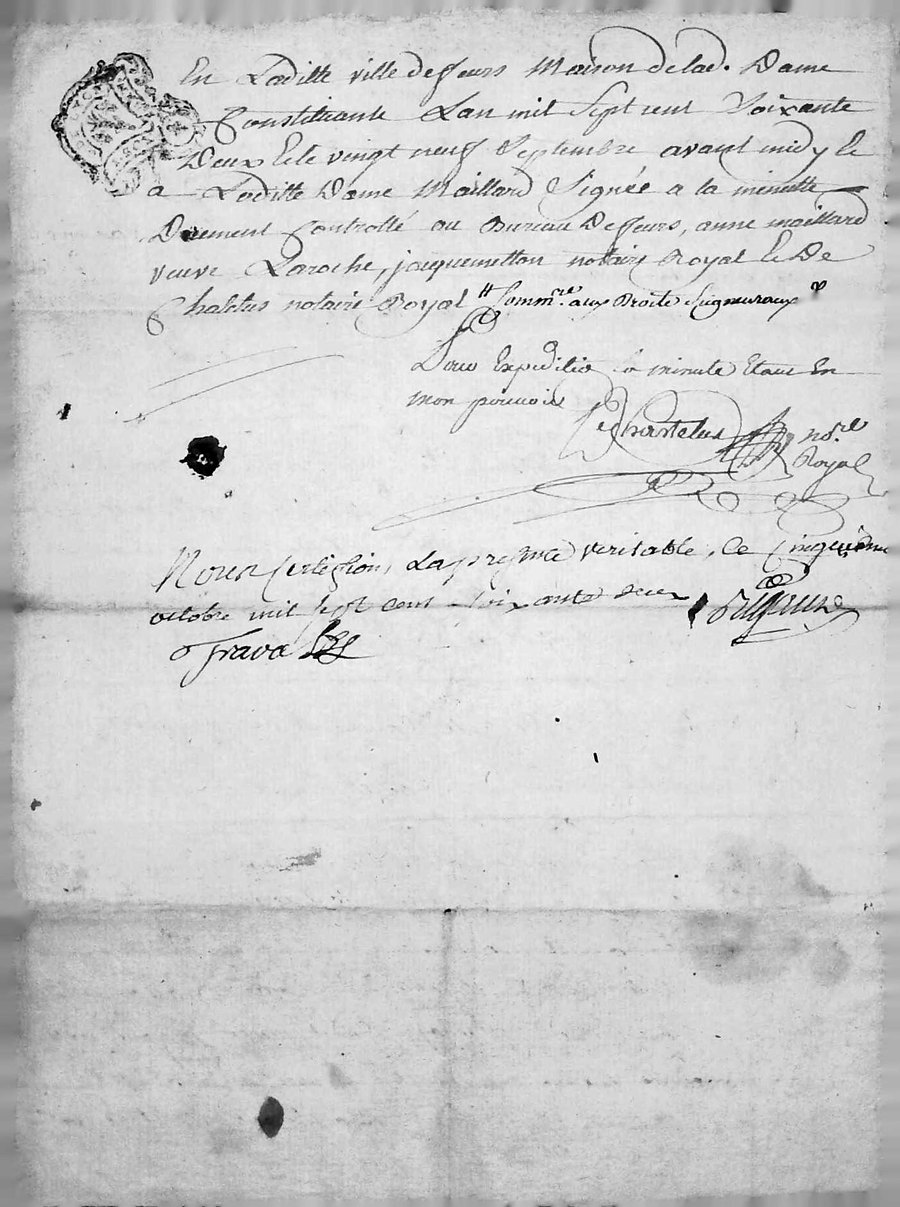 En Laditte ville deffeurs Maison delad. Dame
Constituante Lan mil Sept cent Soixante
Deux Et le vingt neuf Septembre avant midy Et
a Laditte Dame Maillard Signée a la minutte
Duement Controllé au Bureau Deffeurs, anne maillard
veuve Laroche, jacquemetton notaire Royal Et De
Chaletus notaire Royal
aux Droits Seigneuraux
Pour Expeditio la minute Etant En
mon pouvoir
Chastelus no.re
Royal
Nous Certiffions Lapresente veritable, ce Cinquieme
octobre mil sept cent soixante deux